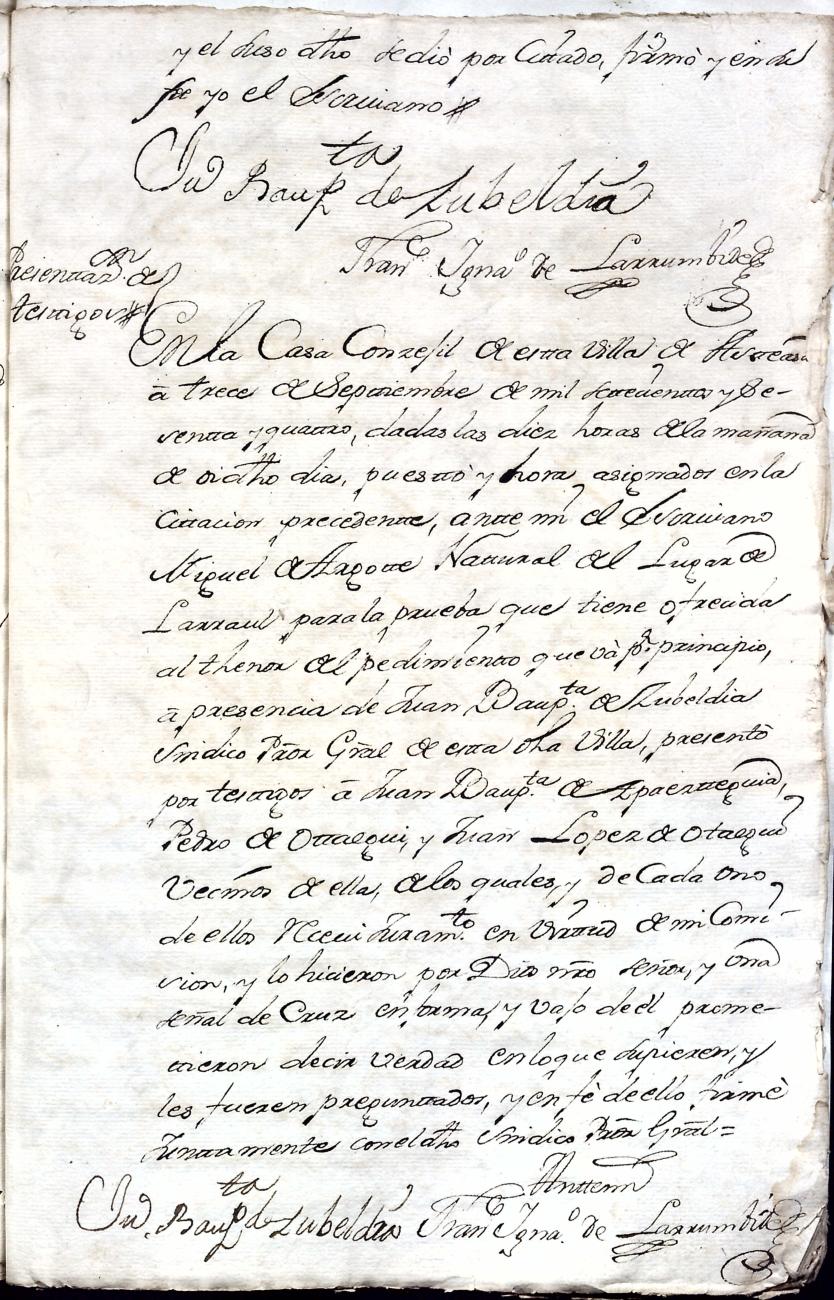 y el suso dho se diò por Cittado, firmò y en su
fee yo el Escrivano
Ju Baupta de Zubeldia
Franco Ignao de Larrumbide
Presenttazon de
testigos
En la Casa Conzejil de estta Villa de Astteasu
â trece de Septtiembre de mil settecienttos y Se-
sentta y quattro, dadas las diez horas de la mañana
de oi dho dia, puestto y hora asignados en la
Cittacion precedentte, antte mi el Escrivano
Miguel de Argotte Nattural del Lugar de
Larraul para la prueba que tiene ofrecida
al thenor del pedimientto que và pr. principio,
â presencia de Juan Baupta. de Zubeldia
Sindico Pror Gral de estta dha Villa, presentò
por testtigos â Juan Baupta. de Apaezttegui,
Pedro de Ottaegui, y Juan Lopez de Otaegui
Vecinos de ella, de los quales, y de Cada ono
de ellos Reciui Juramto. en Virttud de mi Comi-
sion, y lo hicieron por Dios nro señor, y ona
señal de Cruz en forma, y vajo de él prome-
ttieron decir verdad en lo que supieren, y
les fueren pregunttados, y en fè de ello firmè
Junttamente con el dho Sindico Pror Gral=
Antte mi
Ju Baupta de Zubeldia Franco Ignao. de Larrumbide